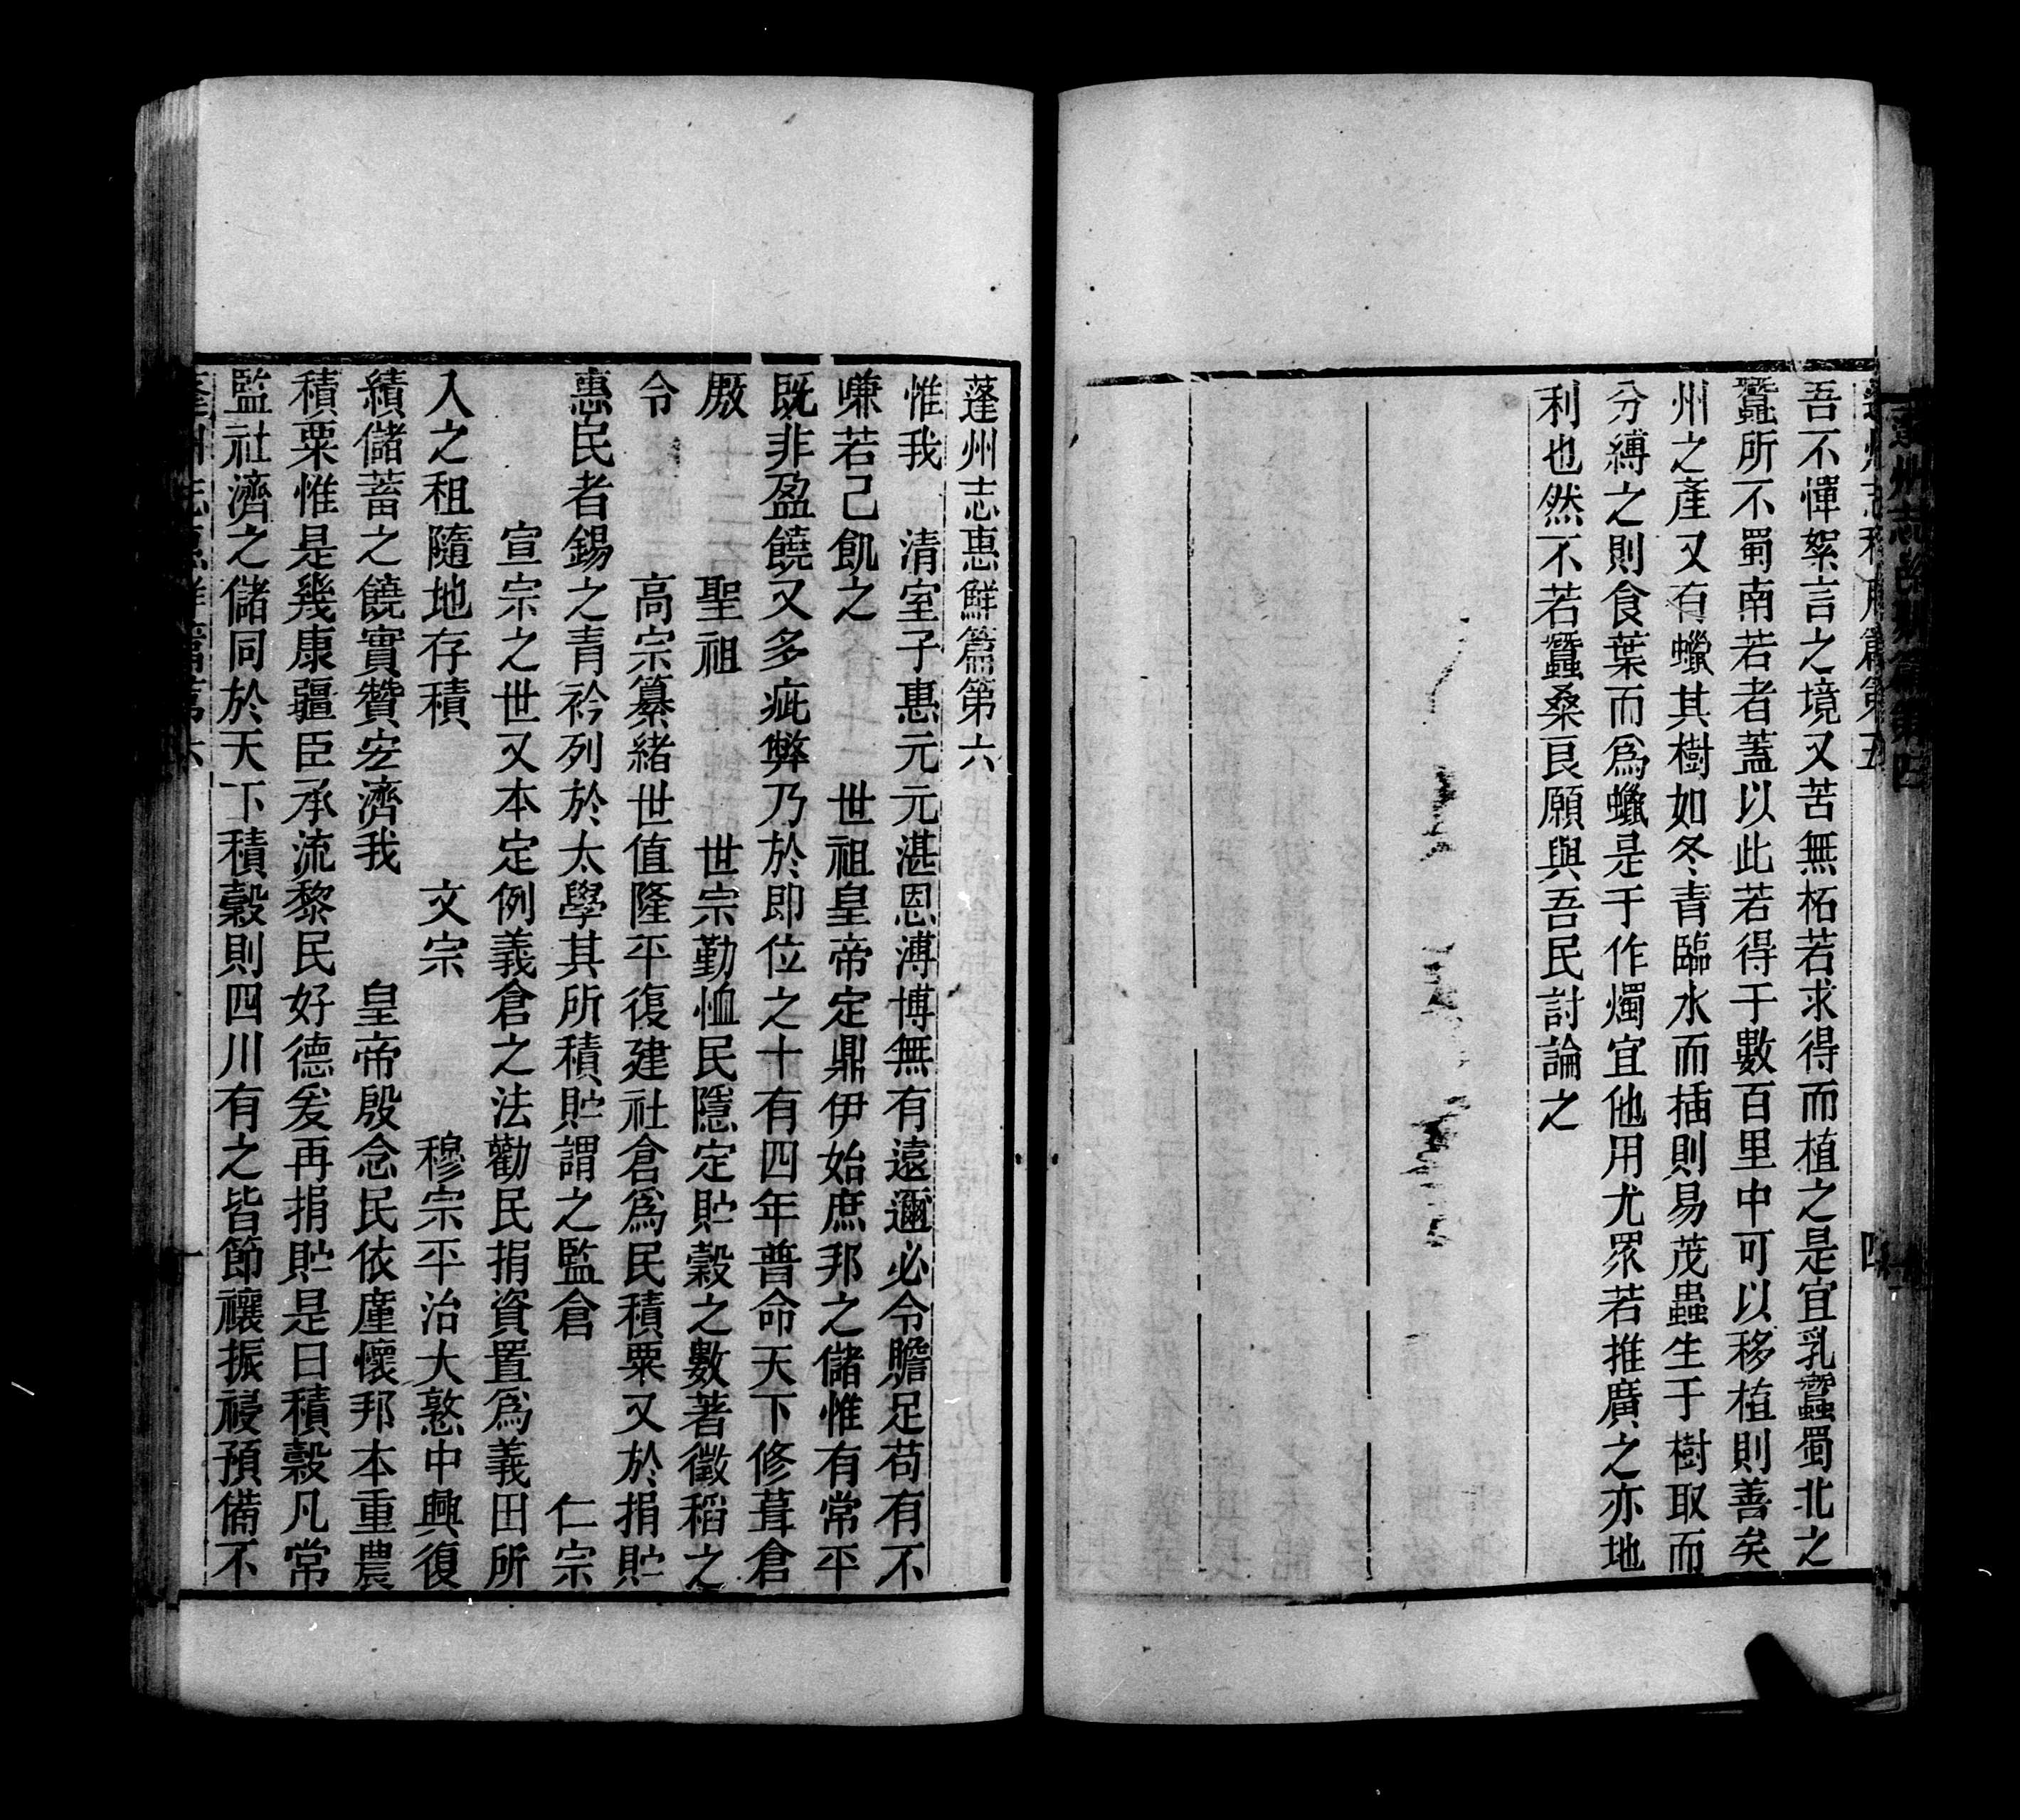 吾不憚絮言之境又苦無柘若求得而植之是宜乳蠶蜀北之
蠶所不蜀南若者蓋以此若得于數百里中可以移植則善矣
州之產又有蠟其樹如冬青臨水而插則易茂蟲生于樹取而
分縛之則食葉而爲蠟是于作燭宜他用尤眾若推廣之亦地
利也然不若蠶桑良願與吾民討論之
四
蓬州志惠鮮篇第六
惟我　清室子惠元元湛恩溥博無有遠邇必令贍足苟有不
嗛若己飢之　　　世祖皇帝定鼎伊始庶邦之儲惟有常平
既非盈饒又多疵弊乃於即位之十有四年普命天下修葺倉
廒　　　聖祖　　　世宗勤恤民隱定貯穀之數著徵稻之
令　　　高宗纂緒世值隆平復建社倉爲民積粟又於捐貯
惠民者錫之青衿列於太學其所積貯謂之監倉　　　仁宗
　　　宣宗之世又本定例義倉之法勸民捐資置爲義田所
入之租隨地存積　　　文宗　　　穆宗平治大憝中興復
績儲蓄之饒實贊宏濟我　　皇帝殷念民依廑懷邦本重農
積粟惟是幾康疆臣承流黎民好德爰再捐貯是曰積穀凡常
監社濟之儲同於天下積穀則四川有之皆節禳振祲預備不
蓬州志惠鮮篇第六